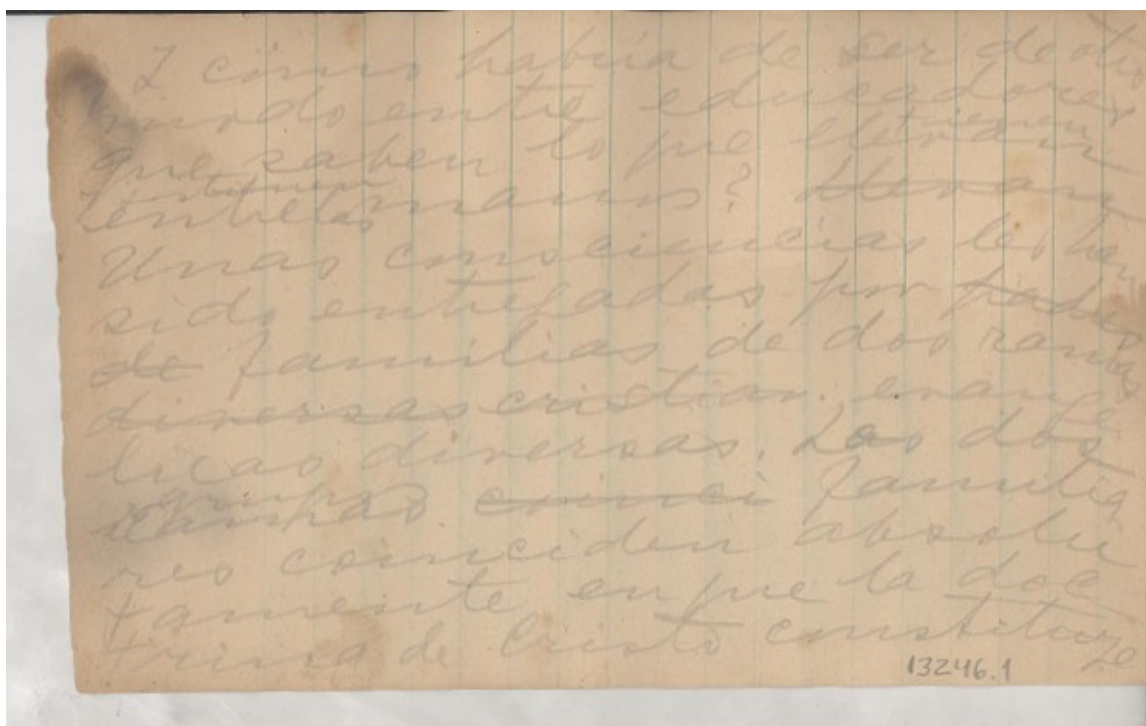 I cómo habría de ser de otro
modo entre educadores
que saben lo que tienen
entre las manos?
Unas consciencias les han
sido entregadas por padres
de familias de dos ramas
diversas cristian. evangé
licas diversas. Los dos
grupos coinci familia
res coinciden absolu
tamente en que la doc
trina de Cristo constituye
13246.1